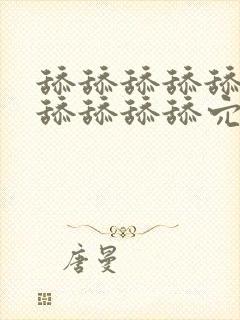 舔舔舔舔舔
舔舔舔舔
唐曼